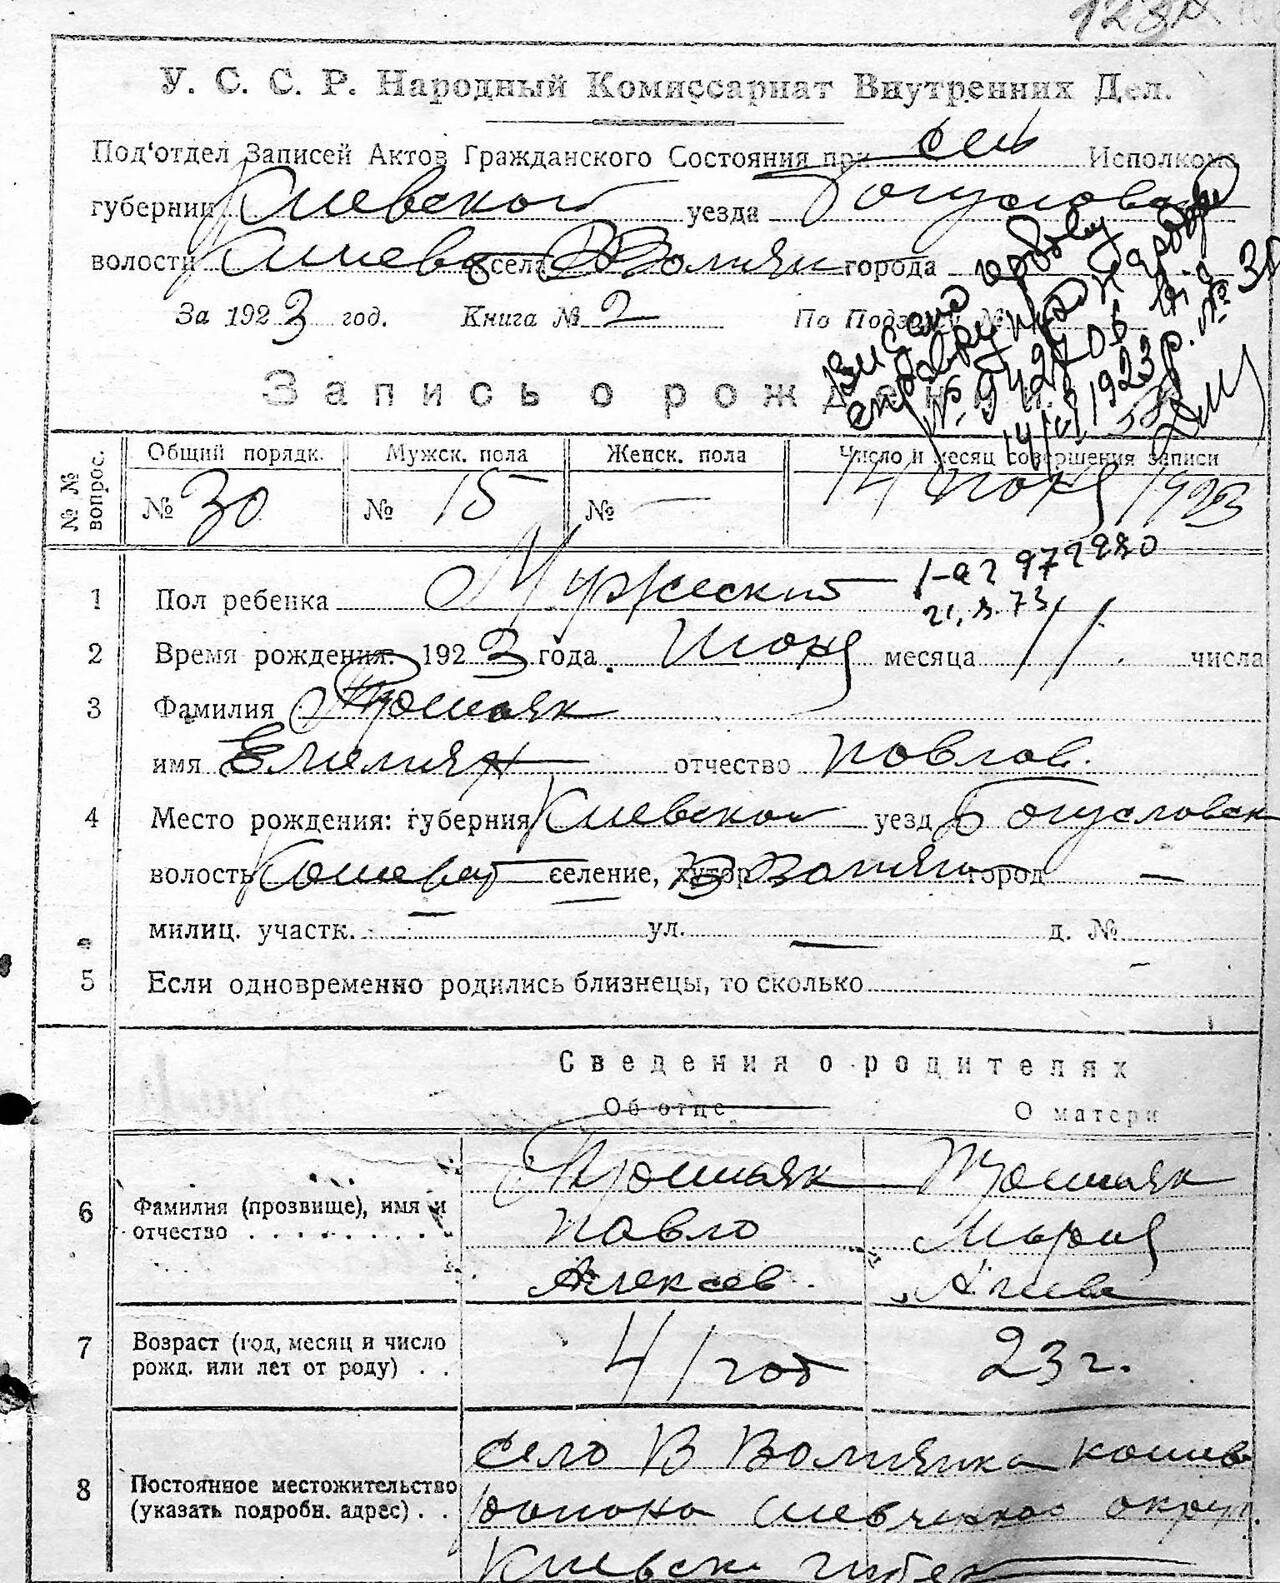 У. С. С. Р. Народный Комиссариат Внутренних Дел.
Под'отдел Записей Актов Гражданского Состояния при сель Исполкоме
губернии Киевской уезда Богуславск
волости села В Волян города
За 1923 год. Книга № 2 По Подза
Запись о рождении.
№ № вопрос. Общий порядк. Мужск. пола Женск. пола Число и месяц совершения записи
№ 30 № 15 № — 14 июня 1923
№ 942706
14/VI 1923 р. № 30
1 Пол ребенка Мужеский
972980
2 Время рождения: 1923 года Июня месяца 11. числа
3 Фамилия
имя Емелиян отчество Повлов.
4 Место рождения: губерния Киевской уезд Богуславск
волость Кошеват селение, хутор В Волян город —
милиц. участк. — ул. — д. №
5 Если одновременно родились близнецы, то сколько —
Сведения о родителях
Об отце О матери
6 Фамилия (прозвище), имя и отчество
Повло Мария
Алексев.
7 Возраст (год, месяц и число рожд. или лет от роду) . . 41 год 23 г.
8 Постоянное местожительство (указать подробн. адрес) . . село В Волянка кошев
района Шевченко округ.
Киевск губер